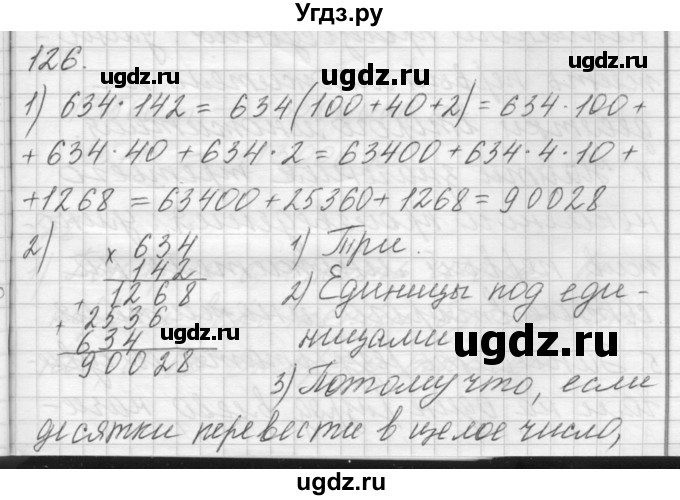 Угдз.ру
126.
ugdz.ru ugdz.ru ugdz.ru
1) 634·142 = 634(100+40+2) = 634·100+
+ 634·40 + 634·2 = 63400 + 634·4·10 +
+1268 = 63400+25360+1268 = 90028
2) × 634
142
+ 1268
+ 2536
634
90028
ugdz.ru
1) Три.
2) Единицы под еди-
ницами
ugdz.ru
3) Потому что, если
десятки перевести в целое число,
ugdz.ru ugdz.ru